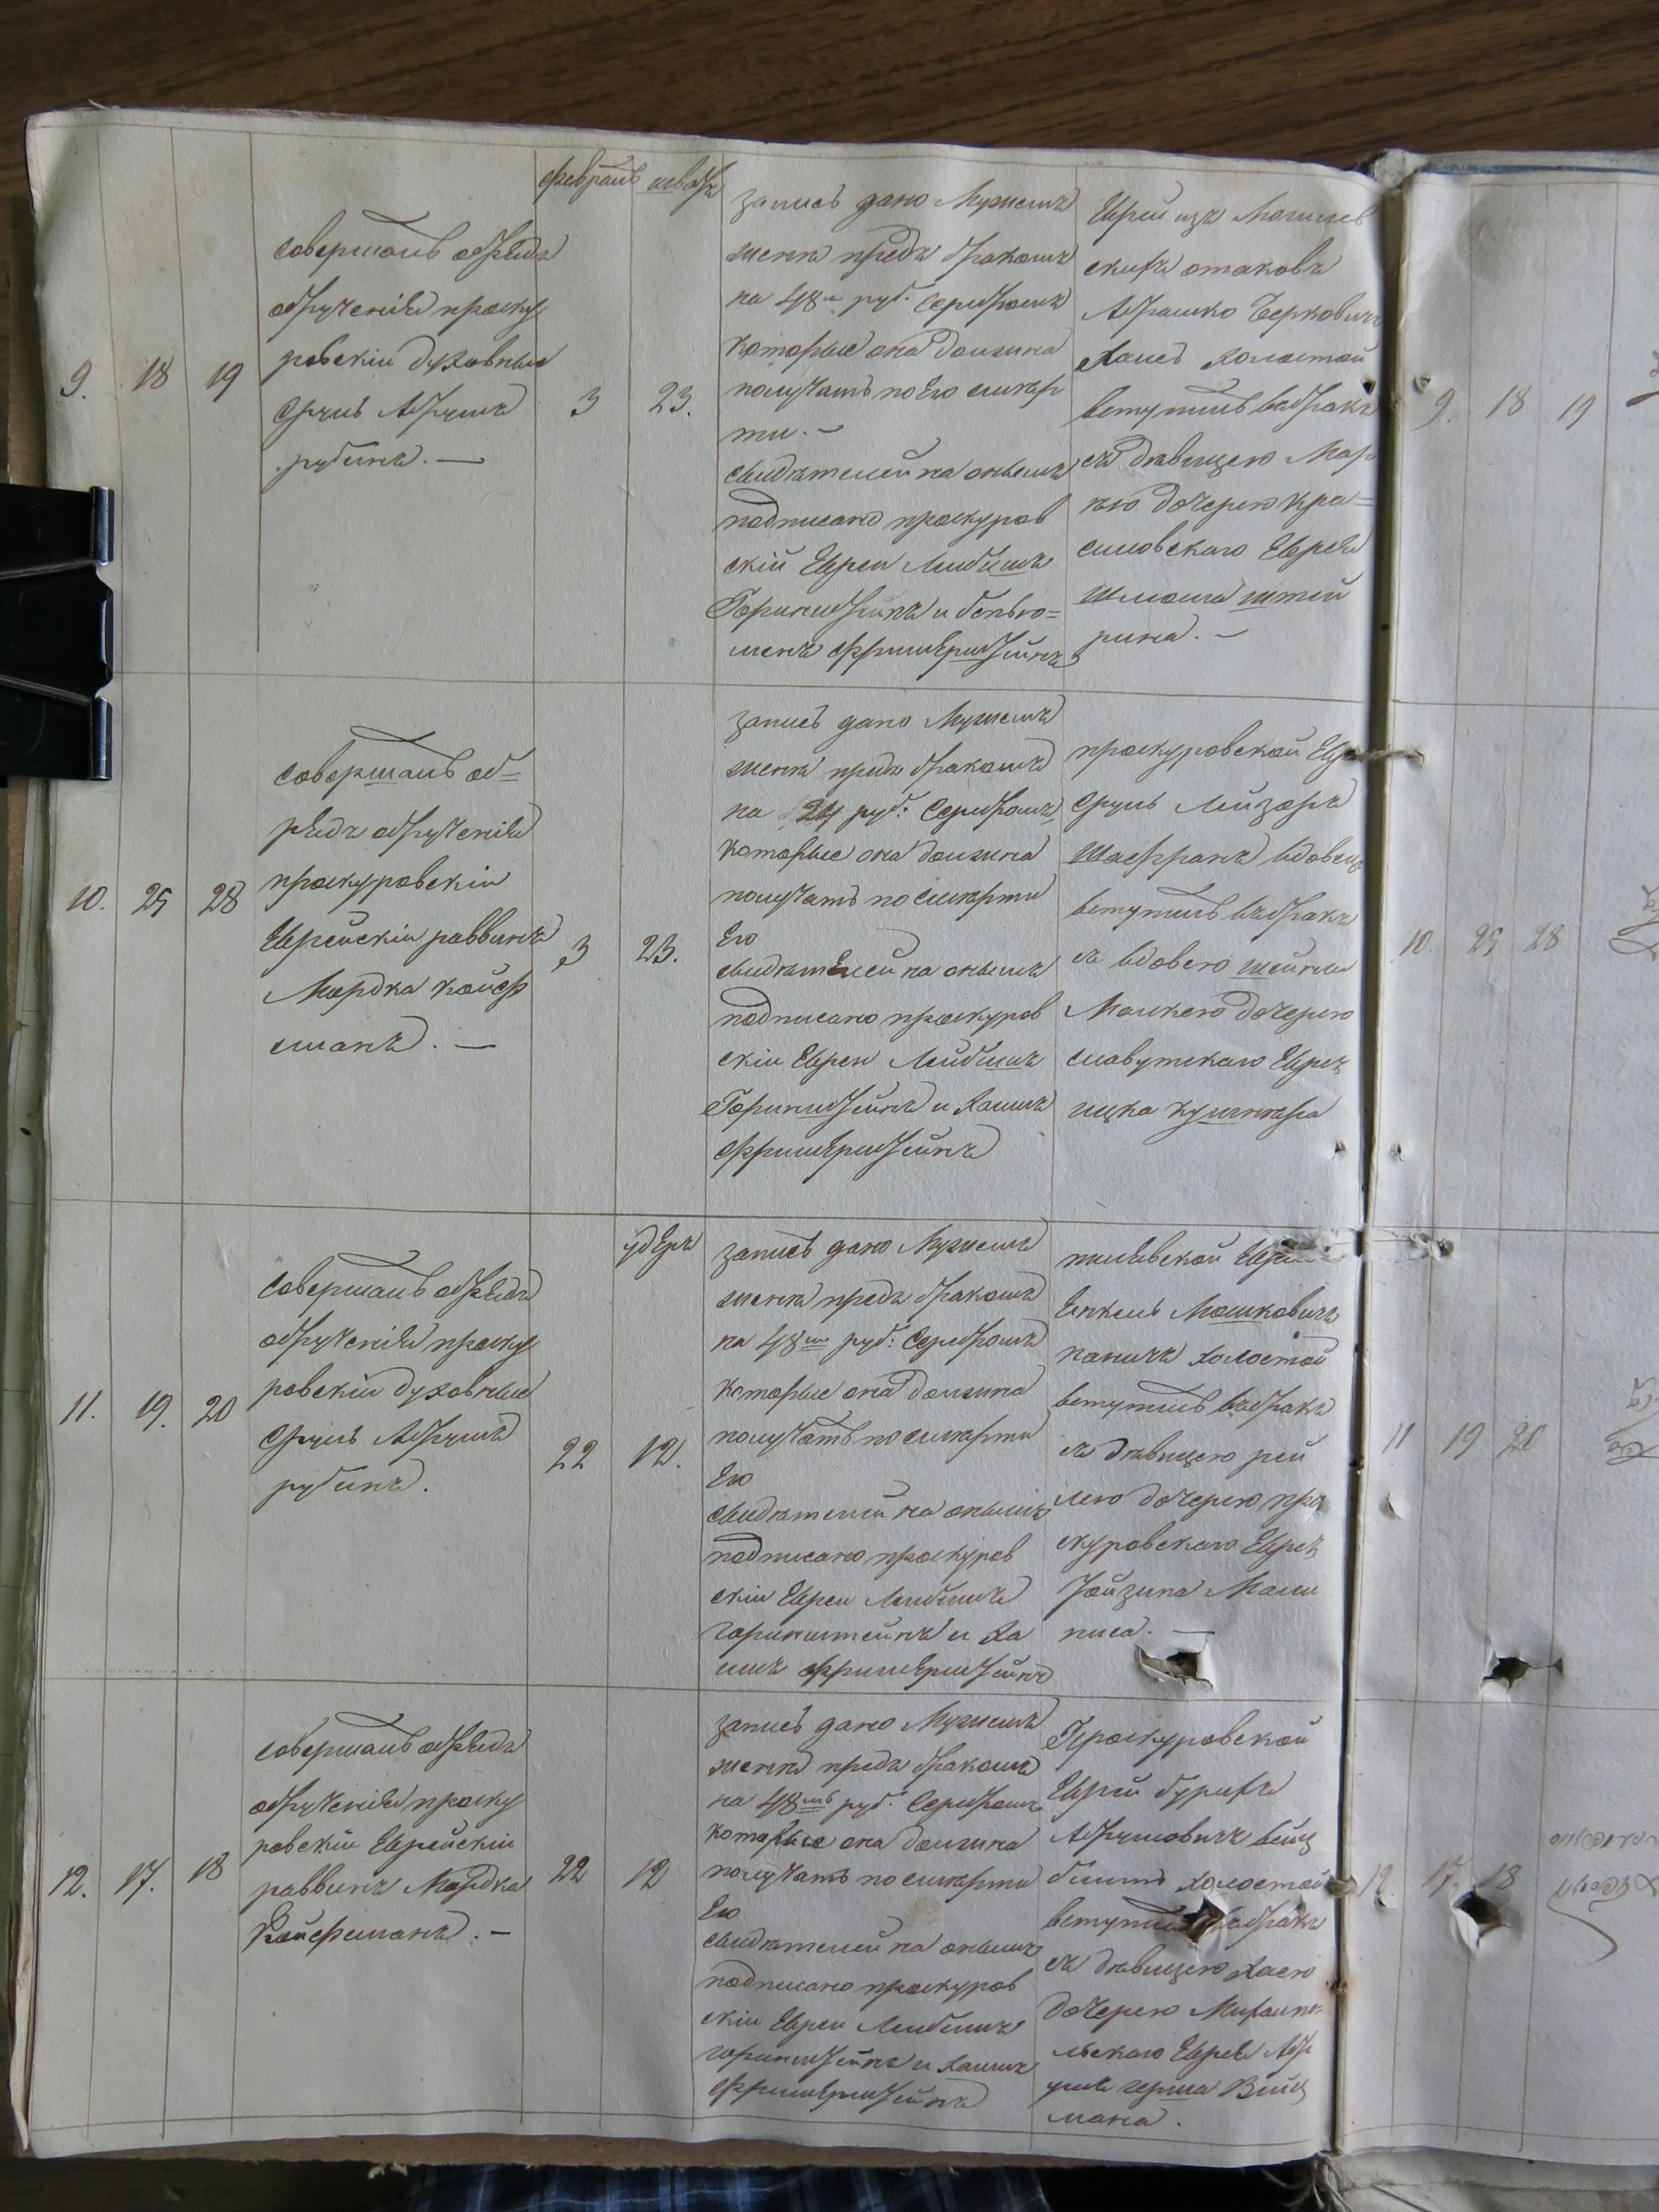 февраль шватъ
9. 18 19
совершалъ обрядъ
обрученія проску
ровскіи духовные
Сруль Абрумъ
рубинъ. —
3 23.
запись дано Мужемъ
жены предъ бракомъ
на 48 руб. серебромъ
которые она должна
получать по Его смер
ти. —
свидѣтелей на онымъ
подписано проскуров
скій Евреи Лейбишъ
Горинштейнъ и беньо=
менъ
Еврей изъ Могилев
скихъ отаковъ
Абрашко Берковичъ
холостой
вступилъ въ бракъ
съ дѣвицею Мар
дочерею кра=
силовскаго Еврея
штей
рина. —
9. 18 19
10. 25 28
совершалъ об=
рядъ обрученія
проскуровскіи
Еврейскіи раввинъ
Мордка койф
манъ. —
3 23.
запись дано Мужемъ
жены предъ бракомъ
на 24 руб: серебромъ
которые она должна
получать по смерти
Его
свидѣтелей на онымъ
подписано проскуров
скіи Евреи Лейбишъ
Горинштейнъ и Хаимъ
проскуровской Евре
Сруль Лейзоръ
Шафранъ вдовецъ
вступилъ въ бракъ
съ вдовею
дочерею
славутскаго Еврея
ицка
10. 25 28
11. 19. 20
совершалъ обрядъ
обрученія проску
ровскіи духовные
Сруль Абрумъ
рубинъ.
22 12.
удеръ
запись дано Мужемъ
жены предъ бракомъ
на 48 руб: серебромъ
которые она должна
получать по смерти
Его
свидѣтелей на онымъ
подписано проскуров
скіи Евреи Лейбишъ
горинштейнъ и Ха
имъ
Еврей
Мошковичъ
холостой
вступилъ въ бракъ
съ дѣвицею рей
дочерею про
скуровскаго Еврея
11 19 20
12. 17. 18
совершалъ обрядъ
обрученія проску
ровскіи Еврейскіи
раввинъ Мордка
Койфманъ. —
22 12
запись дано Мужемъ
жены предъ бракомъ
на 48 руб. серебромъ
которые она должна
получать по смерти
Его
свидѣтелей на онымъ
подписано проскуров
скіи Евреи Лейбишъ
горинштейнъ и Хаимъ
Проскуровской
Еврей бурихъ
Абрумовичъ вейц
холостой
вступилъ въ бракъ
съ дѣвицею Хаею
дочерею Михалпо
льскаго Еврея Абр
ума герша Вейц
мана.
12. 17. 18